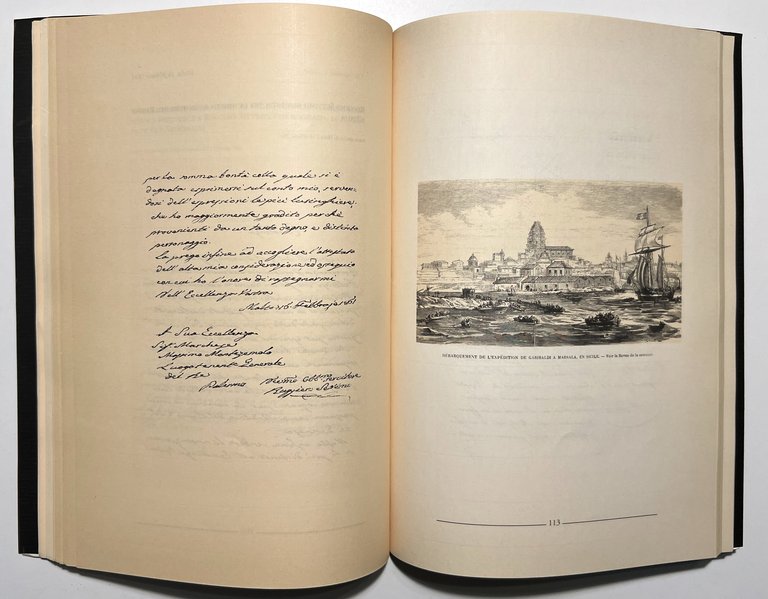 per la somma bontà colla quale si è
degnata esprimersi sul conto mio, serven-
dosi dell'espressioni le più lusinghiere,
che ho maggiormente gradito perchè
provenienti da un tanto degno, e distinto
personaggio.
La prego infine ad accogliere l'attestato
dell'alta mia considerazione ed ossequio
con cui ho l'onore di rassegnarmi
Dell'Eccellenza Vostra
Malta 16 Febbrajo 61
A Sua Eccellenza
Sigr Marchese
Massimo Montezemolo
Luogotenente Generale
del Re
Palermo
Servitore
Ruggiero Settimo
DÉBARQUEMENT DE L'EXPÉDITION DE GARIBALDI A MARSALA, EN SICILE. — Voir la Revue de la semaine.
113